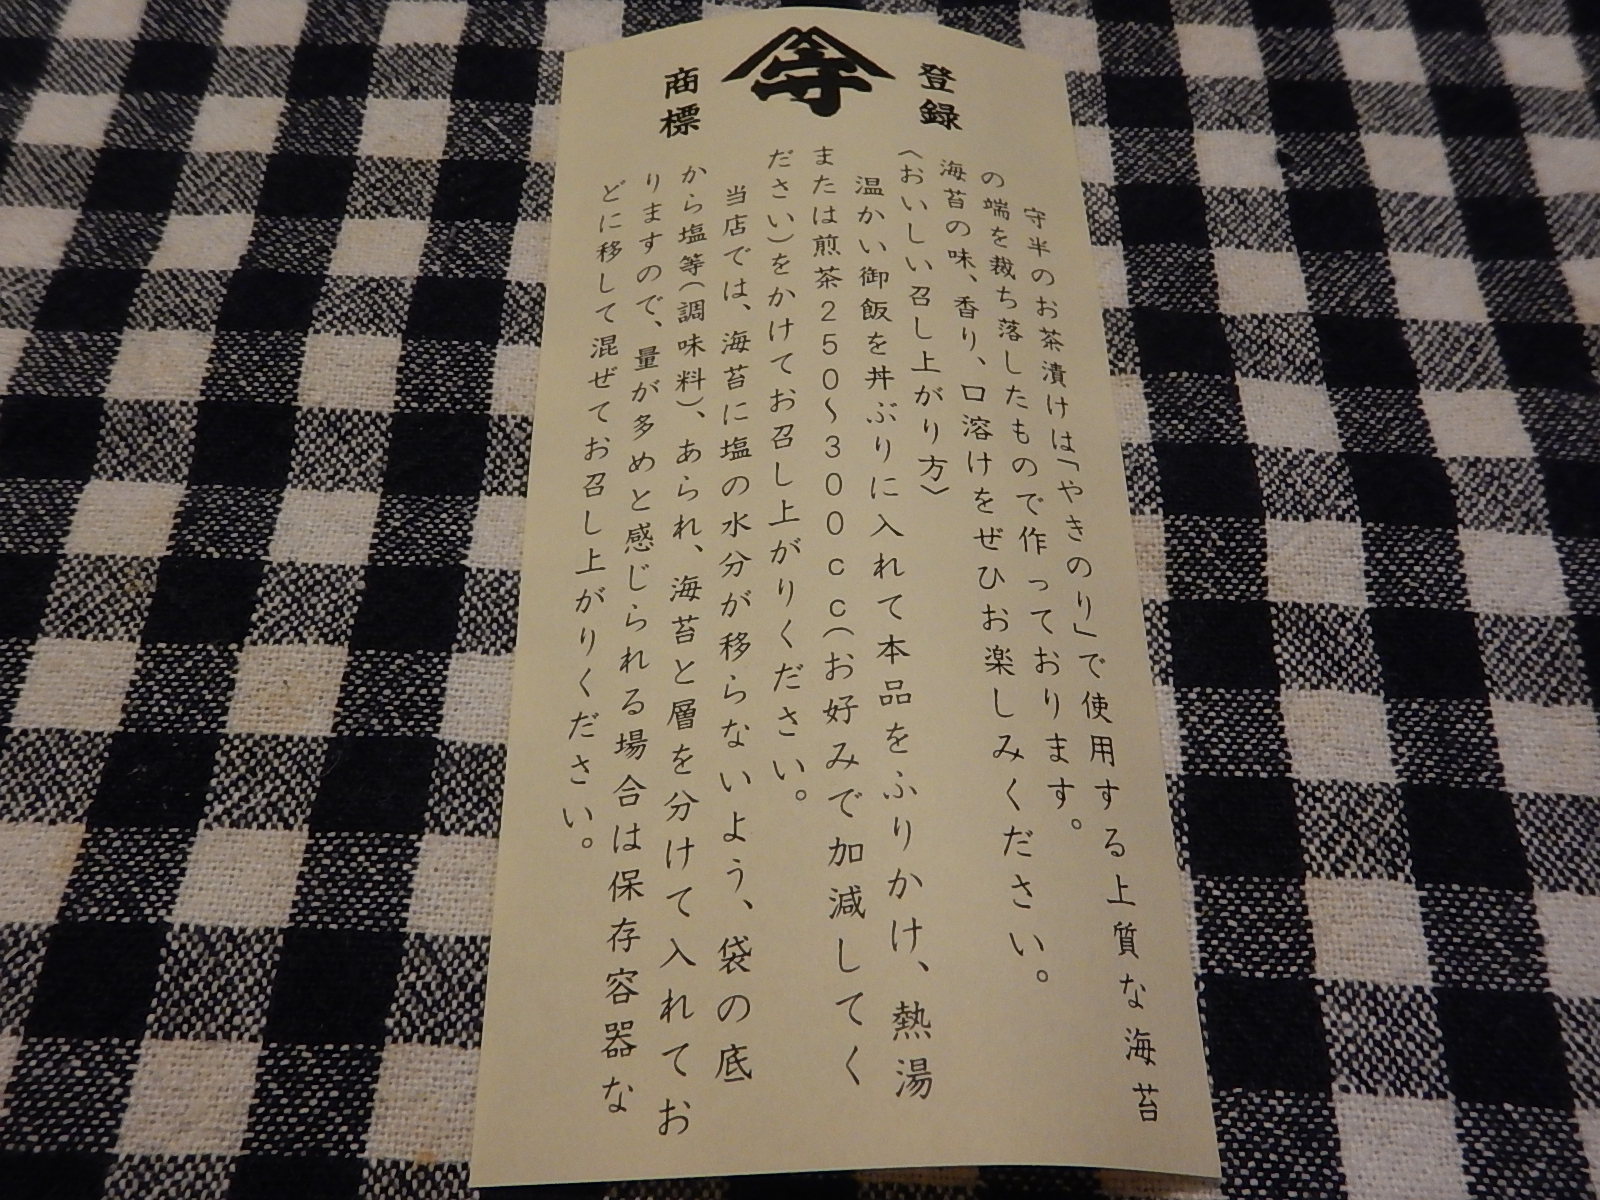 登録
守
商標
守半のお茶漬けは「やきのり」で使用する上質な海苔
の端を裁ち落したもので作っております。
海苔の味、香り、口溶けをぜひお楽しみください。
〈おいしい召し上がり方〉
温かい御飯を丼ぶりに入れて本品をふりかけ、熱湯
または煎茶250〜300cc(お好みで加減してく
ださい)をかけてお召し上がりください。
当店では、海苔に塩の水分が移らないよう、袋の底
から塩等(調味料)、あられ、海苔と層を分けて入れてお
りますので、量が多めと感じられる場合は保存容器な
どに移して混ぜてお召し上がりください。